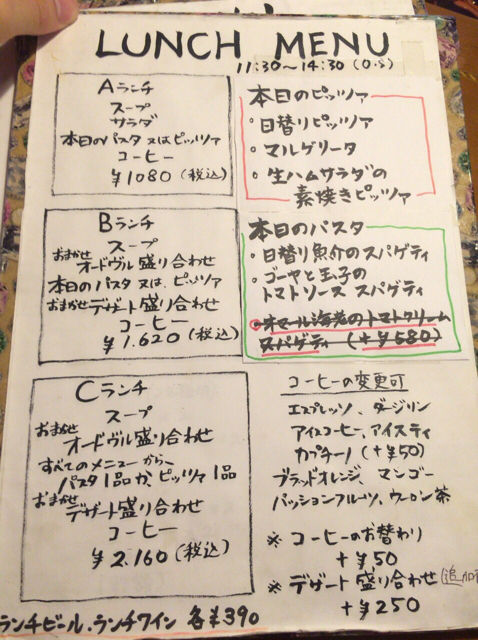 LUNCH MENU
11:30~14:30(O.S)
Aランチ
スープ
サラダ
本日のパスタ又はピッツァ
コーヒー
¥1080(税込)
Bランチ
スープ
おまかせオードヴル盛り合わせ
本日のパスタ又は、ピッツァ
おまかせデザート盛り合わせ
コーヒー
¥1.620(税込)
Cランチ
スープ
おまかせオードヴル盛り合わせ
すべてのメニューから、
パスタ1品か、ピッツァ1品
おまかせデザート盛り合わせ
コーヒー
¥2.160(税込)
ランチビール、ランチワイン 各¥390
本日のピッツァ
・日替りピッツァ
・マルゲリータ
・生ハムサラダの
素焼きピッツァ
本日のパスタ
・日替り魚介のスパゲティ
・ゴーヤと玉子の
トマトソース スパゲティ
オマール海老のトマトクリーム
スパゲティ(+¥580)
コーヒーの変更可
エスプレッソ、ダージリン
アイスコーヒー、アイスティ
カプチーノ(+¥50)
ブラッドオレンジ、マンゴー
パッションフルーツ、ウーロン茶
※コーヒーのお替わり
+¥50
※デザート盛り合わせ(追加
+¥250